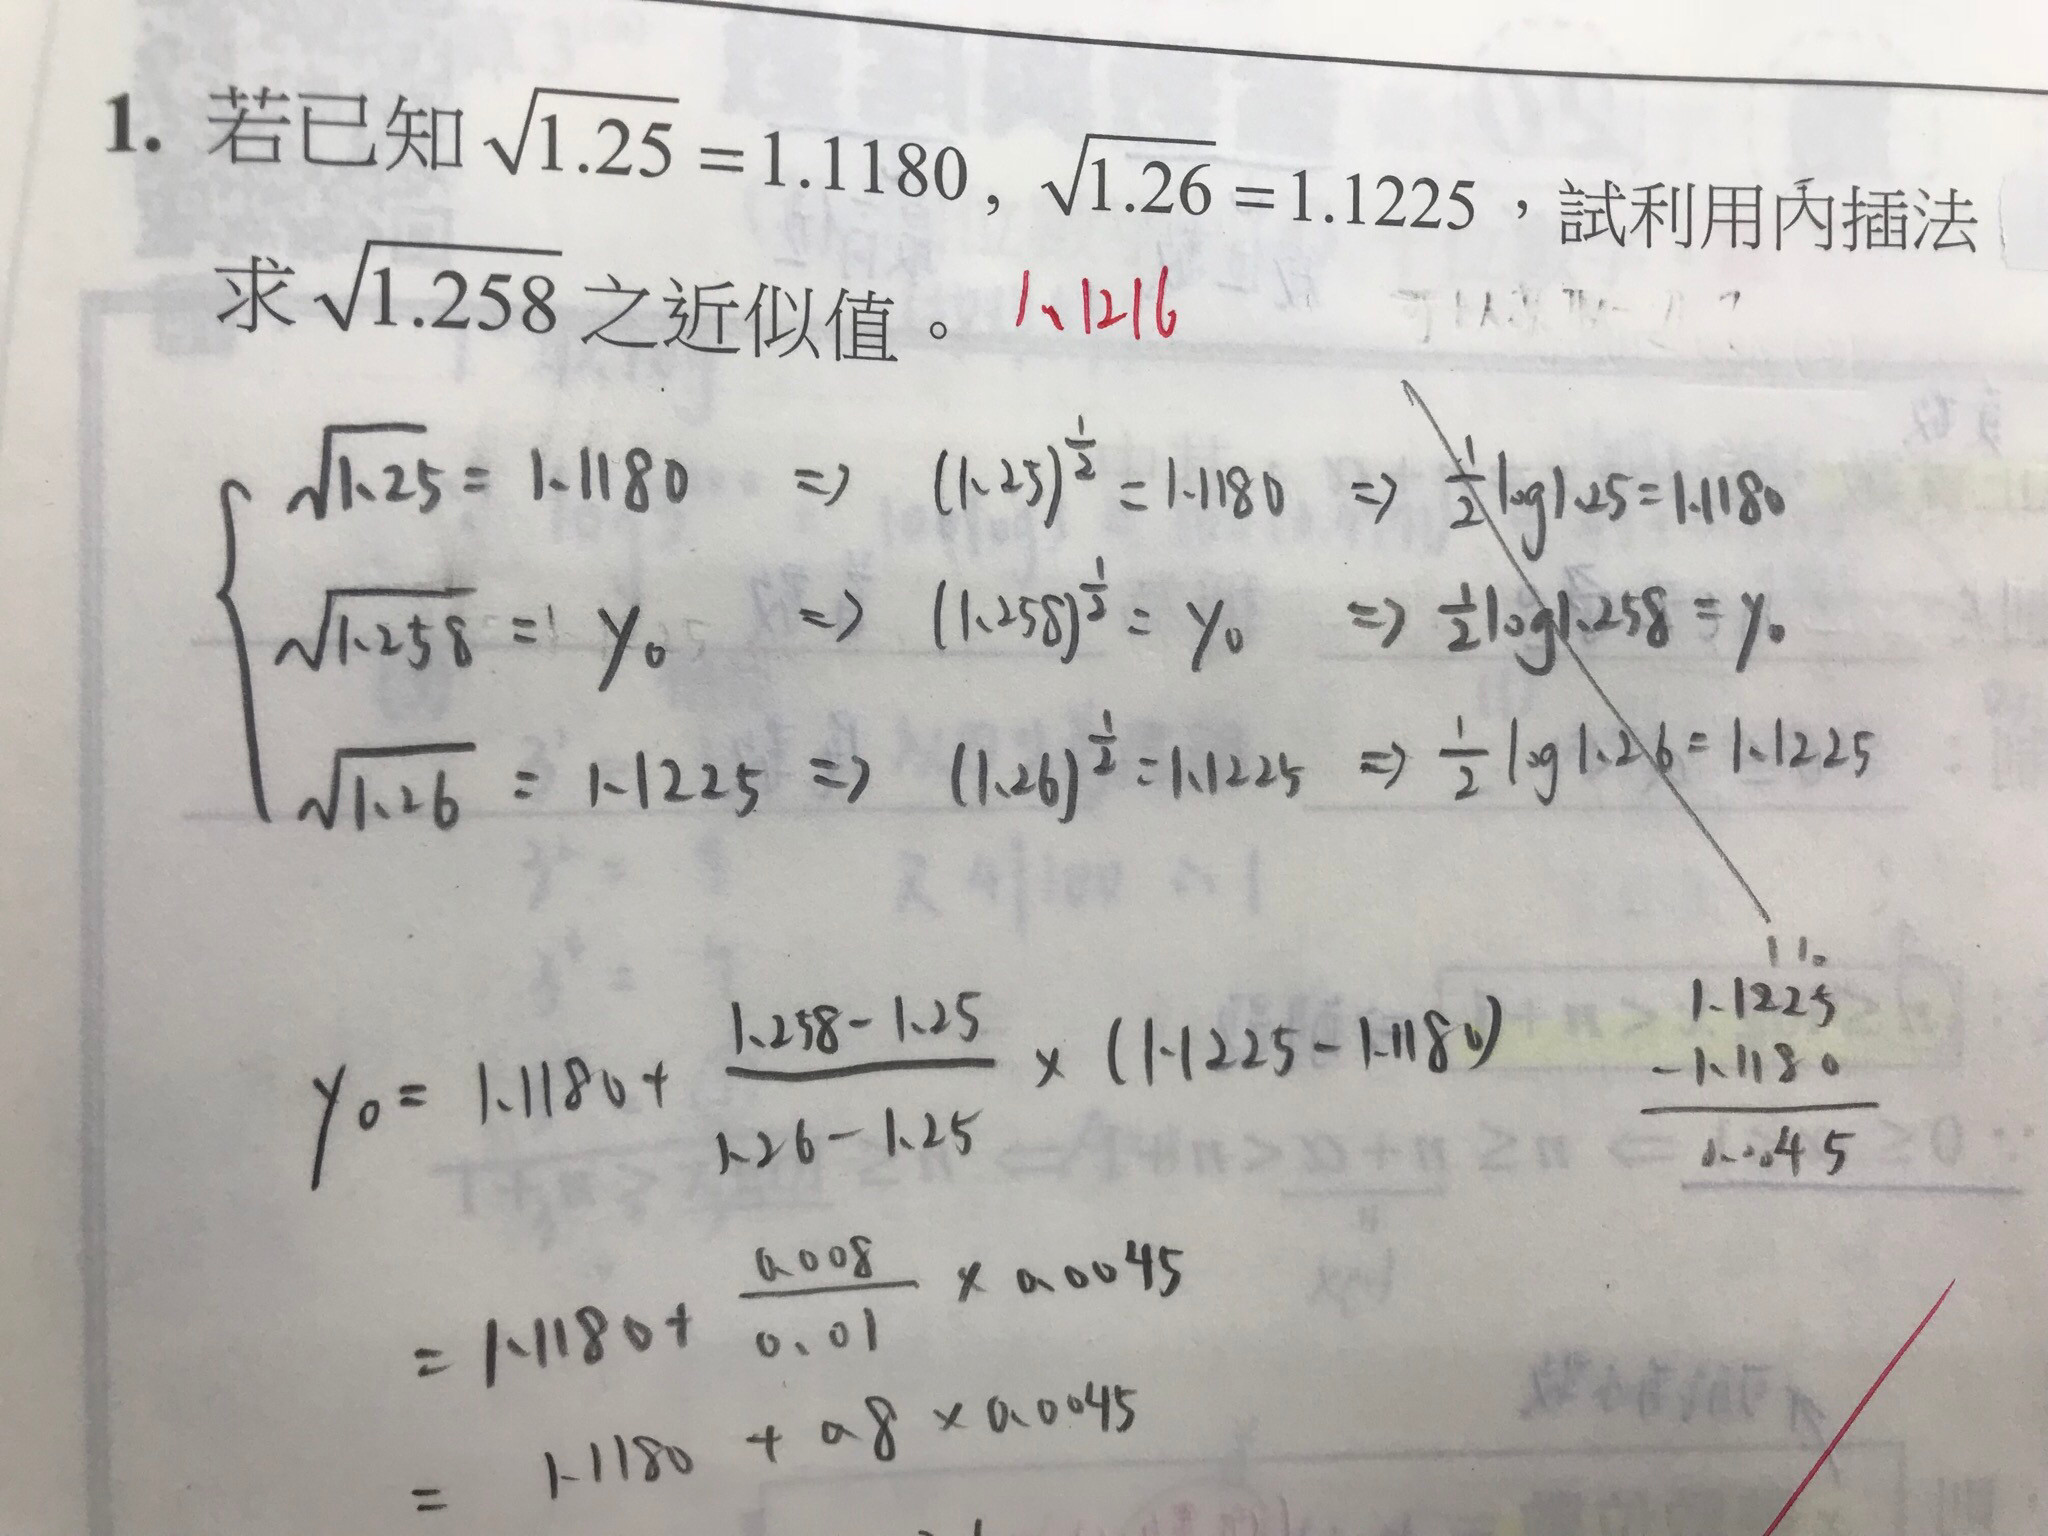 1. 若已知 √1.25 = 1.1180, √1.26 = 1.1225，試利用內插法
求 √1.258 之近似值。 1.1216
√1.25 = 1.1180 => (1.25)^½ = 1.1180 => ½ log1.25 = 1.1180
√1.258 = y₀ => (1.258)^½ = y₀ => ½ log1.258 = y₀
√1.26 = 1.1225 => (1.26)^½ = 1.1225 => ½ log1.26 = 1.1225
y₀ = 1.1180 + (1.258 - 1.25)/(1.26 - 1.25) × (1.1225 - 1.1180)
1.1225
-1.1180
0.0045
= 1.1180 + 0.008/0.01 × 0.0045
= 1.1180 + 0.8 × 0.0045